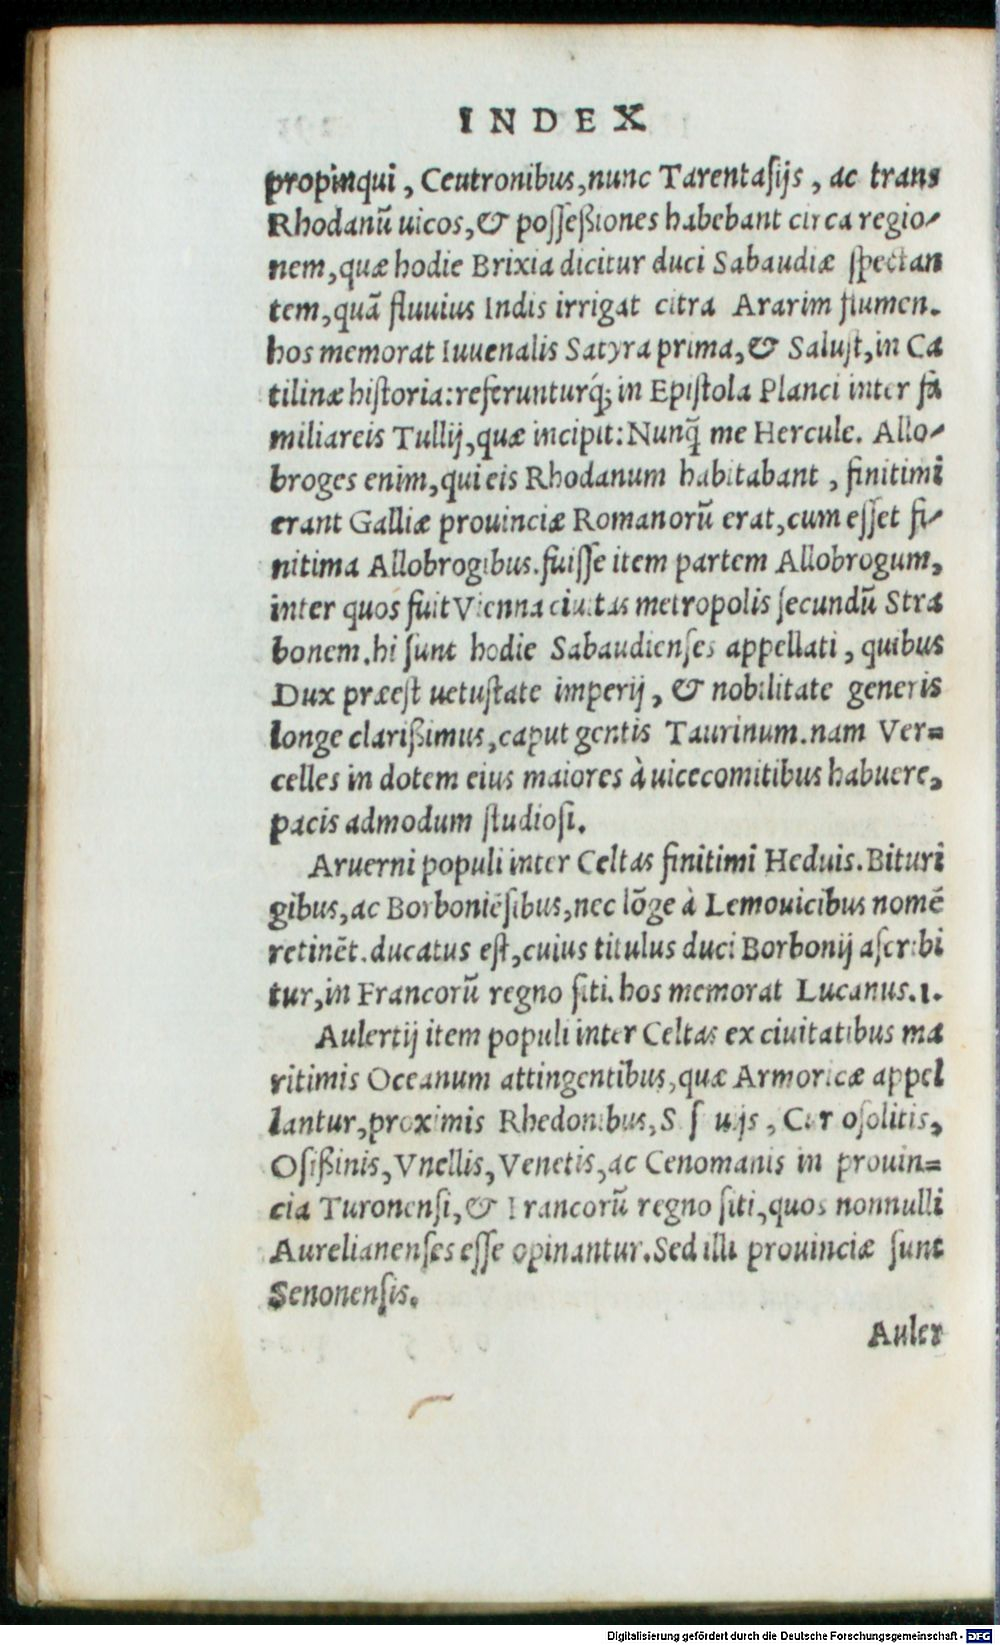 INDEX
propinqui, Ceutronibus, nunc Tarentasijs, ac trans
Rhodanū uicos, & posseßiones habebant circa regio-
nem, quæ hodie Brixia dicitur duci Sabaudiæ spectan
tem, quã fluuius Indis irrigat citra Ararim flumen.
hos memorat Iuuenalis Satyra prima, & Salust, in Ca
tilinæ historia: referunturq́; in Epistola Planci inter fa
miliareis Tullij, quæ incipit: Nunq̃ me Hercule. Allo-
broges enim, qui eis Rhodanum habitabant, finitimi
erant Galliæ prouinciæ Romanorū erat, cum esset fi-
nitima Allobrogibus. fuisse item partem Allobrogum,
inter quos fuit Vienna ciuitas metropolis secundū Stra
bonem. hi sunt hodie Sabaudienses appellati, quibus
Dux præest uetustate imperij, & nobilitate generis
longe clarißimus, caput gentis Taurinum. nam Ver=
celles in dotem eius maiores à uicecomitibus habuere,
pacis admodum studiosi.
Aruerni populi inter Celtas finitimi Heduis. Bituri
gibus, ac Borboniẽsibus, nec lõge à Lemouicibus nomẽ
retinẽt. ducatus est, cuius titulus duci Borbonij ascribi
tur, in Francorū regno siti. hos memorat Lucanus. 1.
Aulertij item populi inter Celtas ex ciuitatibus ma
ritimis Oceanum attingentibus, quæ Armoricæ appel
lantur, proximis Rhedonibus, osolitis,
Osißinis, Vnellis, Venetis, ac Cenomanis in prouin=
cia Turonensi, & Francorū regno siti, quos nonnulli
Aurelianenses esse opinantur. Sed illi prouinciæ sunt
Senonensis.
Auler
Digitalisierung gefördert durch die Deutsche Forschungsgemeinschaft - DFG